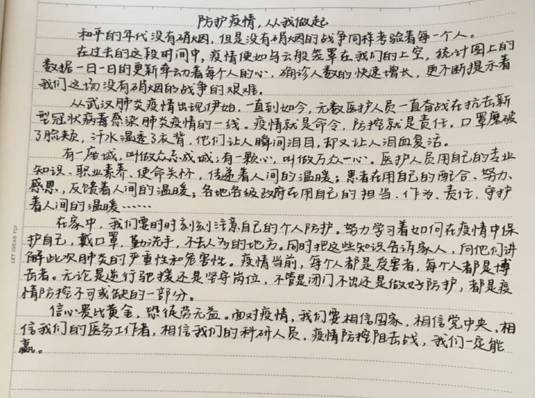 防护疫情，从我做起
和平的年代没有硝烟，但是没有硝烟的战争同样考验着每一个人。
在过去的这段时间中，疫情便如乌云般笼罩在我们的上空，统计图上的
数据一日一日的更新牵动着每个人的心，确诊人数的快速增长，更不断提示着
我们这场没有硝烟的战争的艰难。
从武汉肺炎疫情出现伊始，一直到如今，无数医护人员一直奋战在抗击新
型冠状病毒感染肺炎疫情的一线。疫情就是命令，防控就是责任。口罩磨破
了脸颊，汗水湿透了衣背，他们让人瞬间泪目，却又让人泪血复活。
有一座城，叫做众志成城；有一颗心，叫做万众一心。医护人员用自己的专业
知识、职业素养、使命关怀，传递着人间的温暖；患者在用自己的配合、努力、
感恩，反馈着人间的温暖；各地各级政府在用自己的担当、作为、责任、守护
着人间的温暖……
在家中，我们要时时刻刻注意自己的个人防护，努力学习着如何在疫情中保
护自己，戴口罩，勤洗手，不去人多的地方。同时把这些知识告诉家人，向他们讲
解此次肺炎的严重性和危害性。疫情当前，每个人都是受害者，每个人都是搏
击者。无论是逆行驰援还是坚守岗位，不管是闭门不出还是做好防护，都是疫
情防控不可或缺的一部分。
信心要比黄金，恐徒劳无益。面对疫情，我们要相信国家，相信党中央，相
信我们的医务工作者，相信我们的科研人员，疫情防控阻击战，我们一定能
赢。
LET IDEAS FLY